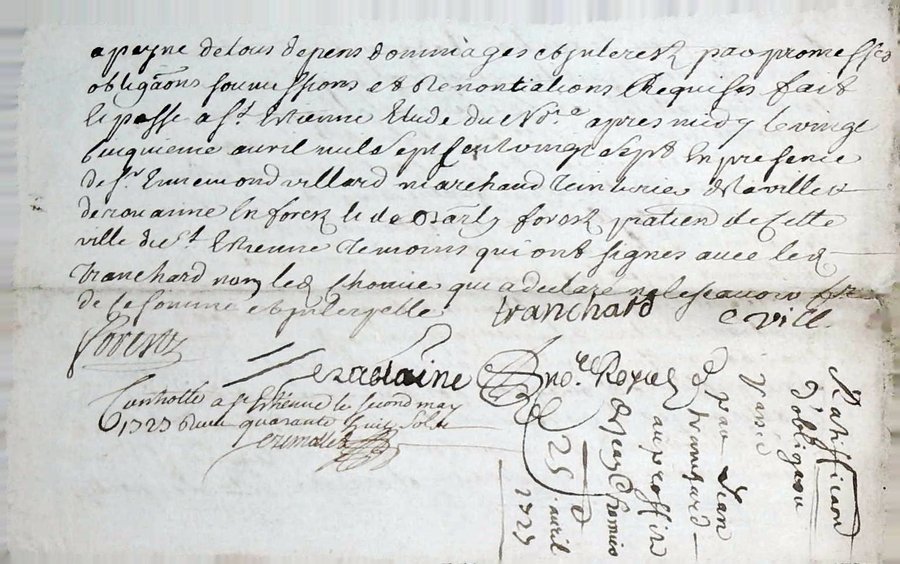 a peyne de tous depens dommages et Jnterest par promesses
obliga~ons soumissions et Renontiations Requises fait
et passé a St Estienne Etude du No.re apres midy le vingt
cinquieme avril mil sept Cent vingt sept En presence
de Sr Ennemond villard marchand teinturier de la ville
de roüanne En forest et de Charly forest praticien de Cette
ville de St Estienne temoins qui ont signes avec led
tranchard non led Chomier qui a declaré ne le scavoir fre
de Ce sommé et Jnterpellé tranchard E vill.
forest
no.re Royal
Controllé a St Estienne le second may
1727 Receu quarante huit sols
Ratifficaon
d'obligaon
passée
par Jean
tranchard
au proffit
de Jean Chomier
25 avril
1727